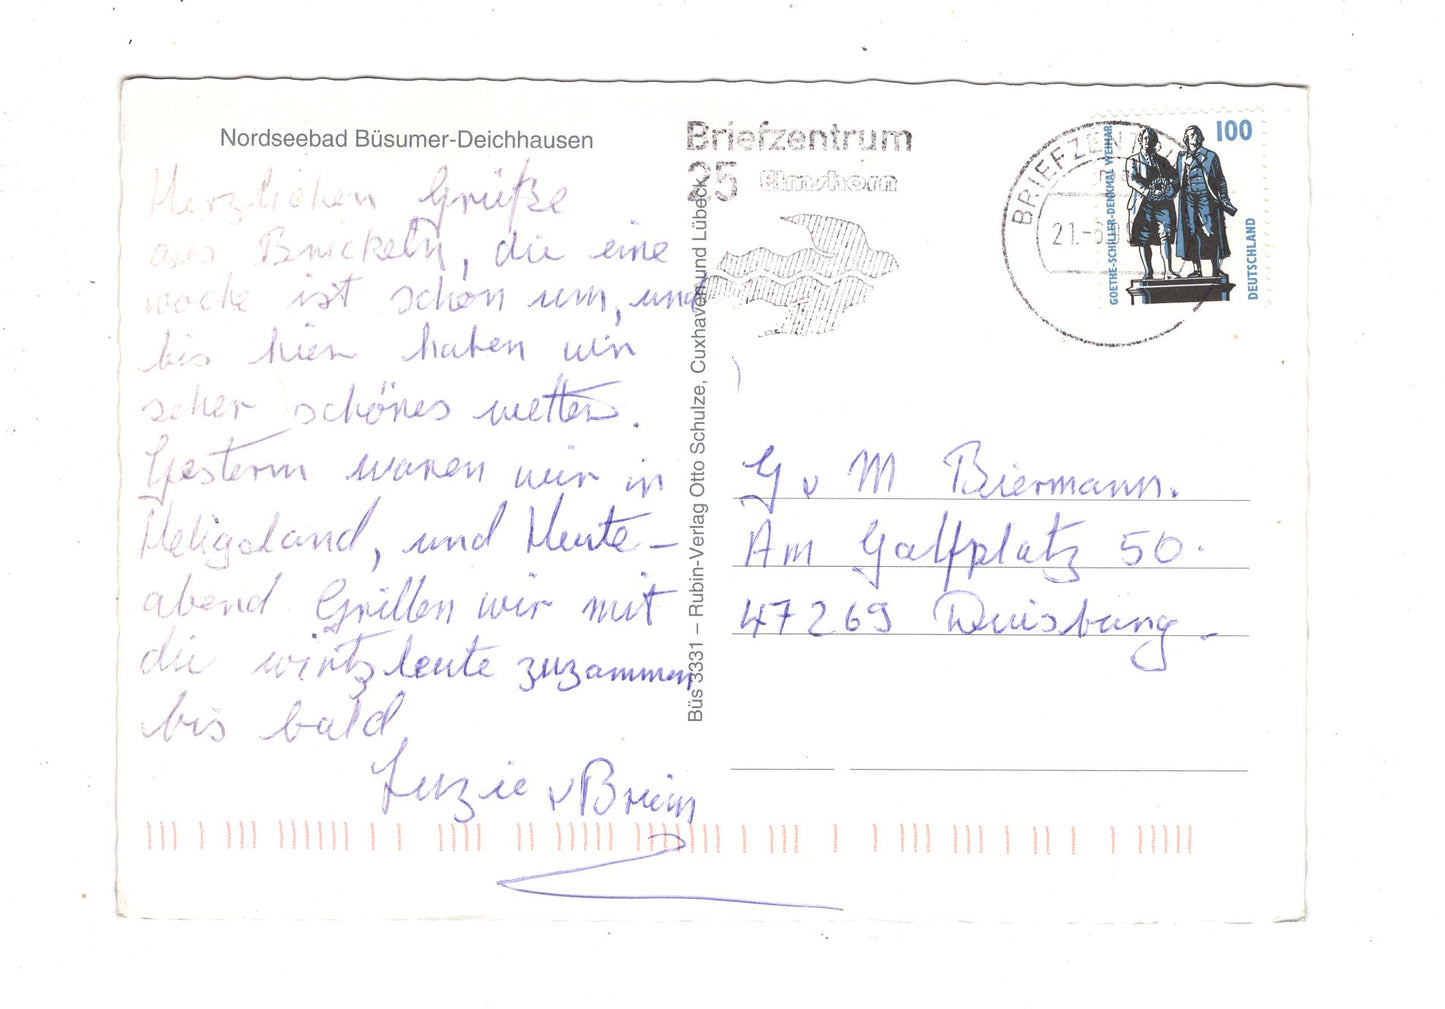 Nordseebad Büsumer-Deichhausen
Herzlichen Grüße
aus Brickeln, die eine
woche ist schon um, und
bis hier haben wir
seher schönes wetter.
Gestern waren wir in
Heligoland, und Heute-
abend Grillen wir mit
die wirtzleute zuzammen
bis bald
Luzie v
Büs 3331 – Rubin-Verlag Otto Schulze, Cuxhaven und Lübeck
Briefzentrum
25 Elmshorn
BRIEFZEN
21.-
100
GOETHE-SCHILLER-DENKMAL WEIMAR
DEUTSCHLAND
G v M Biermann.
Am Golfplatz 50.
47269 Duisburg.